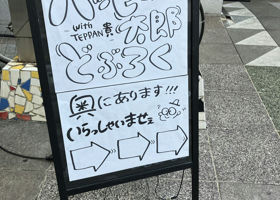 ハッピー
with TEPPAN 貴太郎
どぶろく
奥にあります!!!
いらっしゃいませぇ